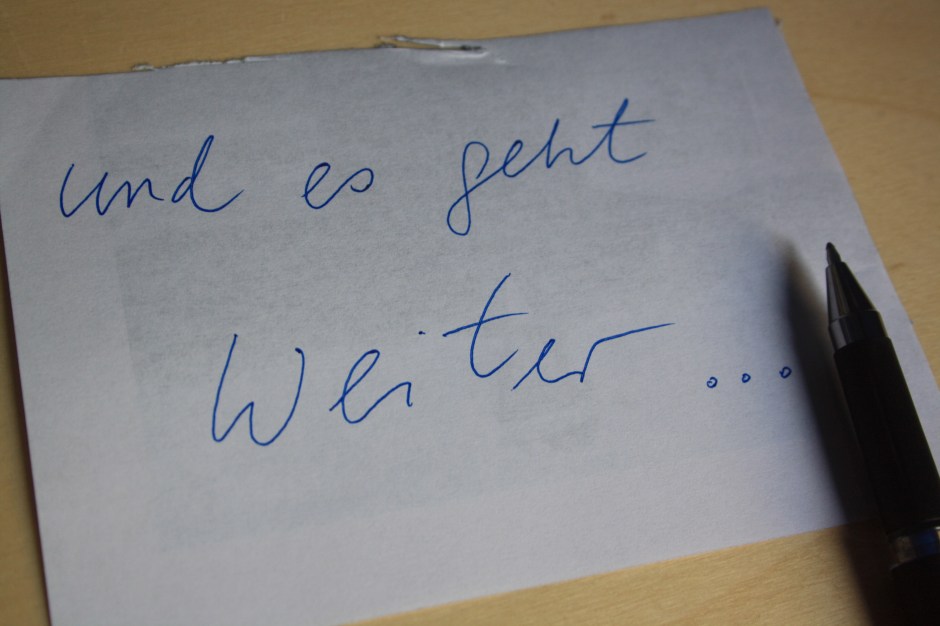 und es geht
weiter ...